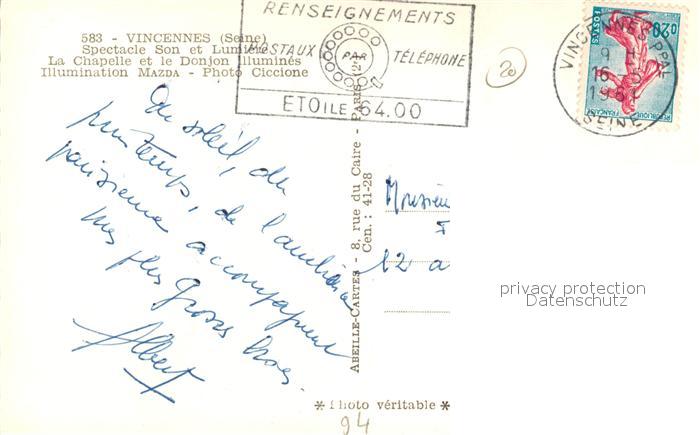 583 - VINCENNES (Seine)
Spectacle Son et Lumière
La Chapelle et le Donjon illuminés
Illumination MAZDA - Photo Ciccione
RENSEIGNEMENTS
POSTAUX PAR TÉLÉPHONE
ETOILE 64.00
20
VINCENNES PPAL
9 H
16 - 5
196
SEINE
0,20
POSTES
REPUBLIQUE FRANÇAISE
Du soleil, du
printemps, de l'ambiance
parisienne accompagnent
mes plus grosses bises.
Albert
ABEILLE-CARTES - 8, rue du Caire - PARIS (2e)
Cen. : 41-28
Monsieur
I
12 a
privacy protection
Datenschutz
* Photo véritable *
94